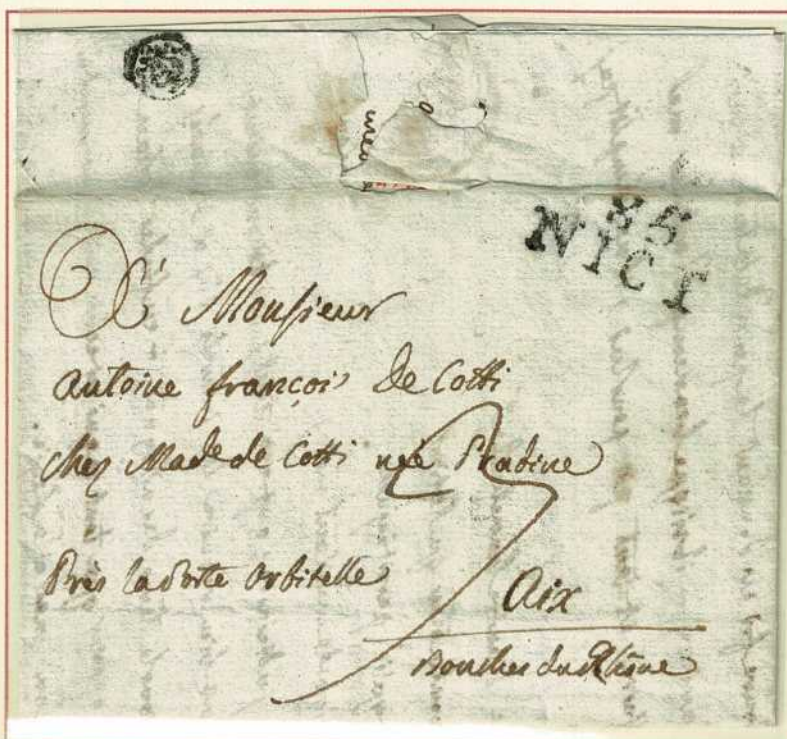 85
NICE
À Monsieur
Antoine françois De Cotti
chez Made de Cotti née Pradine
Près la Porte Orbitelle
Aix
Bouches du Rhône